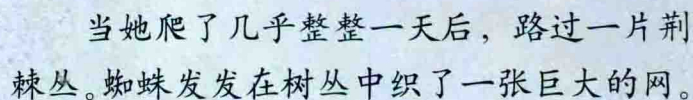 当她爬了几乎整整一天后，路过一片荆
棘丛。蜘蛛发发在树丛中织了一张巨大的网。